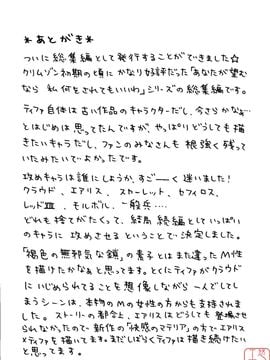 ＊あとがき＊
ついに総集編として発行することができました☆
クリムゾン初期の頃にかなり好評だった「あなたが望む
なら 私何をされてもいいわ」シリーズの総集編です。
ティファ自体は古い作品のキャラクターだし、今さらかなぁ…
とはじめは思ってたんですが、やっぱりどうしても描
きたいキャラだし、ファンのみなさんも根強く残って
いたみたいでよかったです。
攻めキャラは誰にしようか、すごーく迷いました!
クラウド、エアリス、スカーレット、セフィロス、
レッドⅩⅢ、モルボル、一般兵…
どれも捨てがたくって、結局 続編としていっぱい
のキャラに 攻めさせる ということで決定しました。
「褐色の無邪気な鏡」の素子とはまた違ったM性
を描けたかなぁと思ってます。とくにティファがクラウド
にいじめられてることを想像しながら一人でして
しまうシーンは、本物のMの女性の方からも支持されまし
た。ストーリーの都合上、エアリスはどうしても登場させ
られなかったので 新作の「快感のマテリア」の方でエアリス
×ティファを描いてます。まだしばらくティファは描き続けたい
と思ってます。